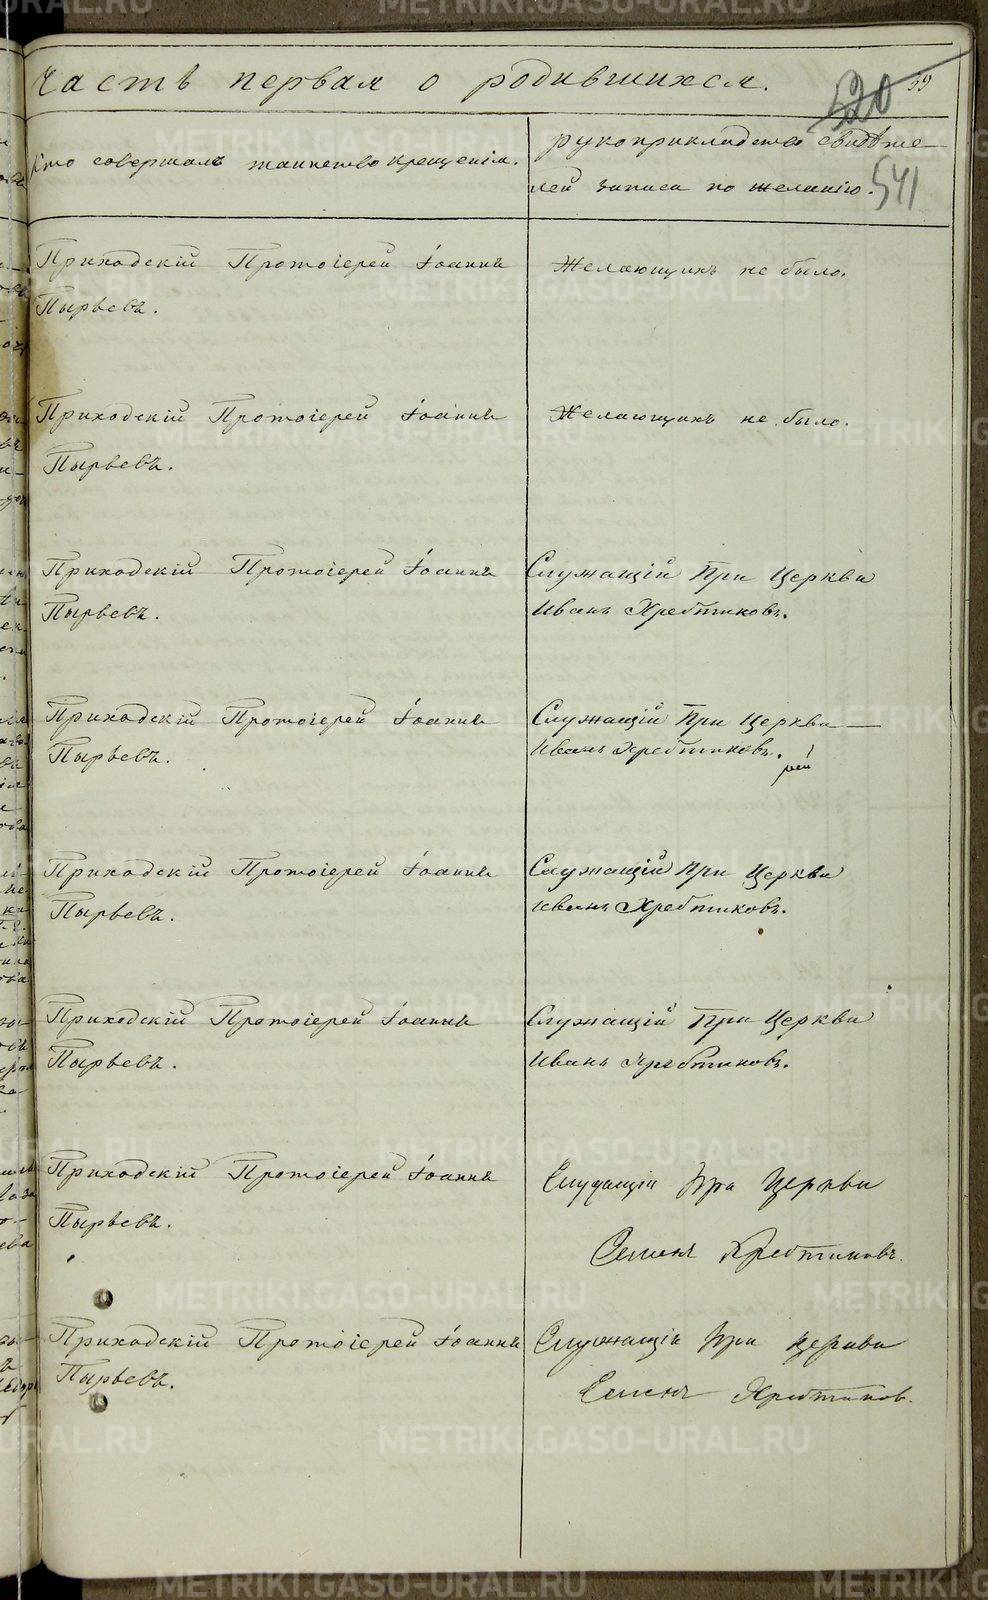 Часть первая о родившихся.
520
59
Кто совершалъ таинство крещенія.
рукоприкладство свидѣте-
лей записи по желанію.
541
Приходскій Протоіерей Іоаннъ
Пырьевъ.
Желающихъ не было.
Приходскій Протоіерей Іоаннъ
Пырьевъ.
Желающихъ не было.
Приходскій Протоіерей Іоаннъ
Пырьевъ.
Служащій При Церкви
Иванъ Хребтиковъ.
Приходскій Протоіерей Іоаннъ
Пырьевъ.
Служащій При Церкви
Иванъ Хребтиковъ.
Приходскій Протоіерей Іоаннъ
Пырьевъ.
Служащій При Церкви
Иванъ Хребтиковъ.
Приходскій Протоіерей Іоаннъ
Пырьевъ.
Служащій При Церкви
Иванъ Хребтиковъ.
Приходскій Протоіерей Іоаннъ
Пырьевъ.
Служащій При Церкви
Семенъ Хребтиковъ.
Приходскій Протоіерей Іоаннъ
Пырьевъ.
Служащій При Церкви
Семенъ Хребтиков.
METRIKI.GASO-URAL.RU